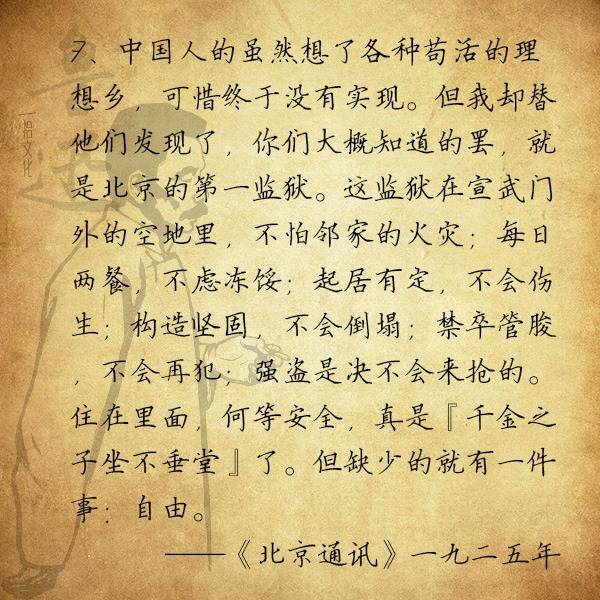 7、中国人的虽然想了各种苟活的理
想乡，可惜终于没有实现。但我却替
他们发现了，你们大概知道的罢，就
是北京的第一监狱。这监狱在宣武门
外的空地里，不怕邻家的火灾；每日
两餐，不虑冻馁；起居有定，不会伤
生；构造坚固，不会倒塌；禁卒管脧
，不会再犯；强盗是决不会来抢的。
住在里面，何等安全，真是『千金之
子坐不垂堂』了。但缺少的就有一件
事：自由。
——《北京通讯》一九二五年